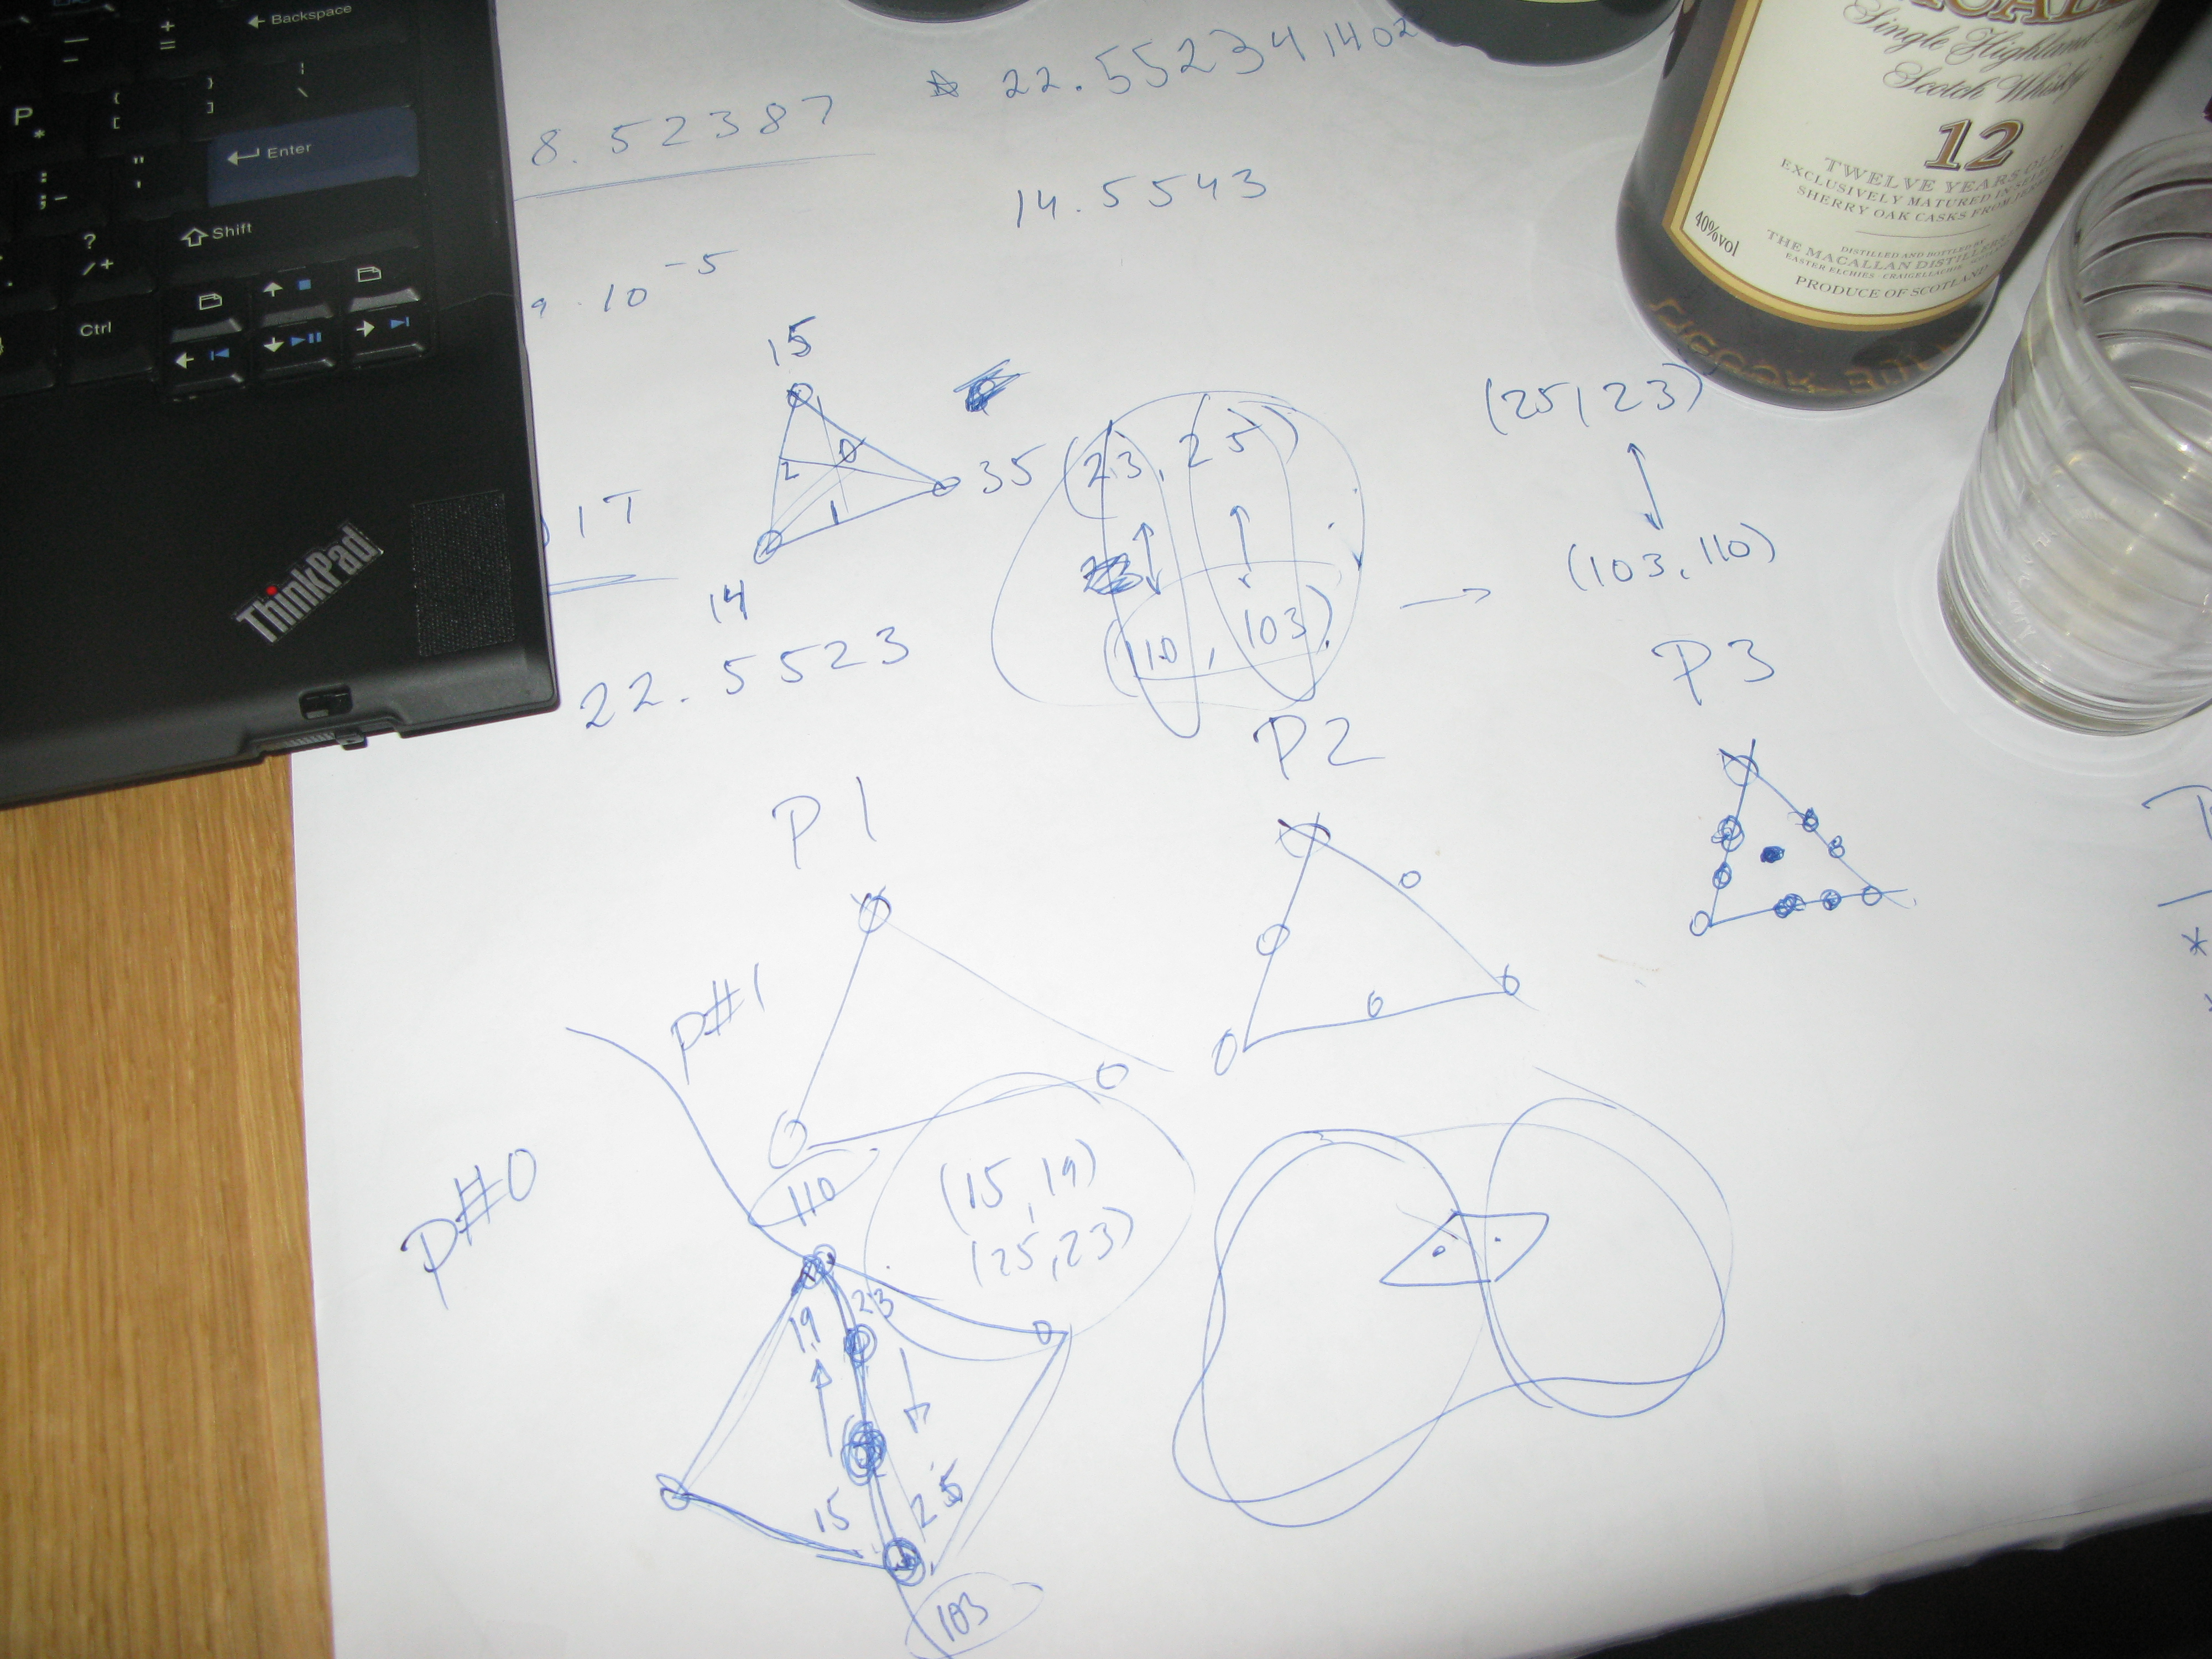 Backspace
Enter
Shift
Ctrl
P
ThinkPad
8.52387
* 22.552341402
14.5543
9 · 10^-5
15
0
2
1
35 (23, 25)
14
(110, 103)
→
(25, 23)
(103, 110)
1T
22.5523
P1
P2
P3
p#1
p#0
110
(15, 19)
(25, 23)
19
23
15
25
103
Single Highland
Scotch Whisky
12
TWELVE YEARS OLD
EXCLUSIVELY MATURED IN
SHERRY OAK CASKS FROM
40%vol
DISTILLED AND BOTTLED BY
THE MACALLAN DISTILLERS
EASTER ELCHIES · CRAIGELLACHIE
PRODUCE OF SCOTLAND